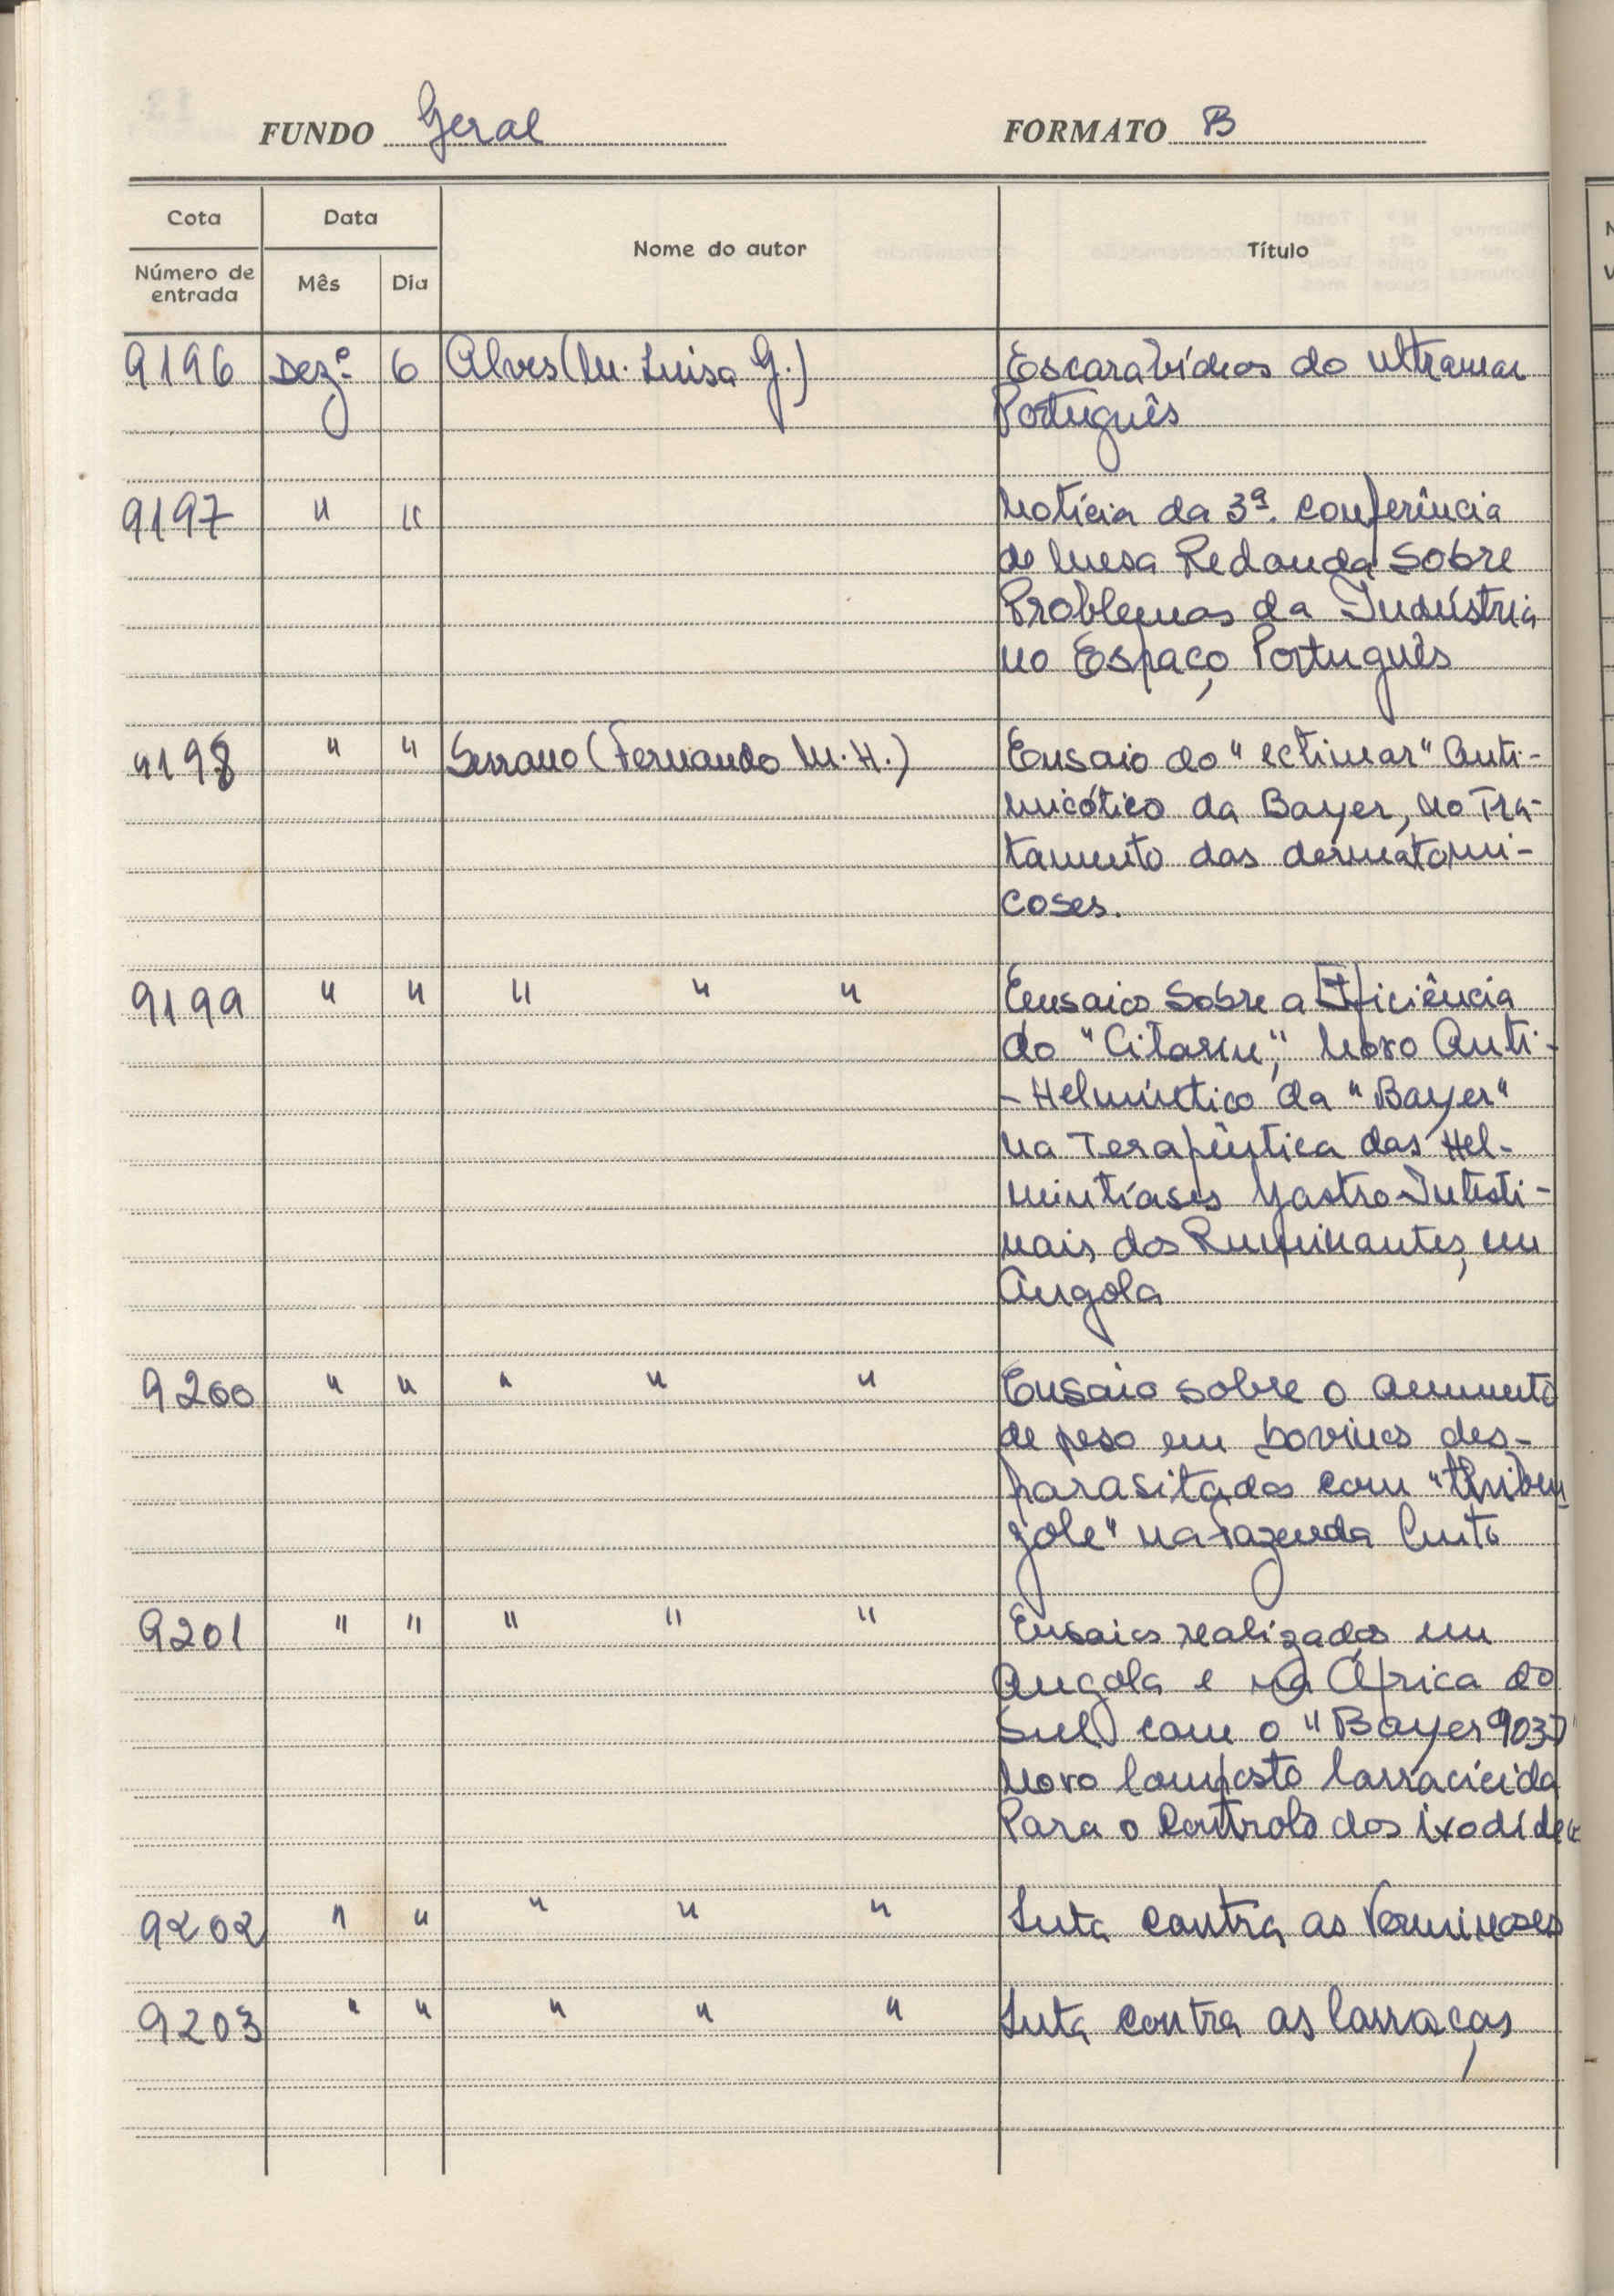 FUNDO Geral FORMATO B
Cota Data Nome do autor Título
Número de entrada Mês Dia
9196 Dezº 6 Alves (M. Luisa G.) Escarabídeos do Ultramar
Português
9197 " " Notícia da 3ª. Conferência
de Mesa Redonda Sobre
Problemas da Indústria
no Espaço Português
9198 " " Serrano (Fernando M. H.) Ensaio do "ectimar" Anti-
micótico da Bayer, no Tra-
tamento das dermatomi-
coses.
9199 " " " " " Ensaios Sobre a Eficiência
do "Citarin", Novo Anti-
-Helmíntico da "Bayer"
na Terapêutica das Hel-
mintíases Gastro-Intesti-
nais dos Ruminantes, em
Angola
9200 " " " " " Ensaio sobre o aumento
de peso em bovinos des-
parasitados com
zole" na Fazenda Cuito
9201 " " " " " Ensaios realizados em
Angola e na África do
Sul com o "Bayer 9037"
Novo Composto Carracicida
Para o Controlo dos ixodídeos
9202 " " " " " Luta contra as Verminoses
9203 " " " " " Luta contra as Carraças